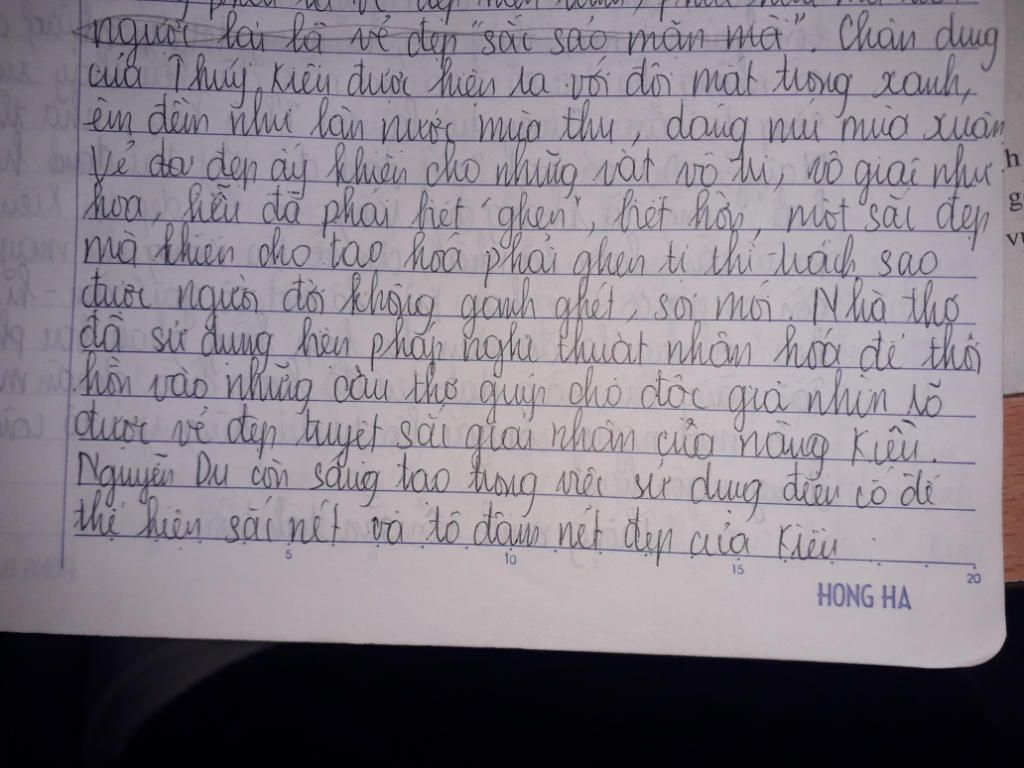 người lại là vẻ đẹp "sắc sảo mặn mà". Chân dung
của Thúy Kiều được hiện ra với đôi mắt trong xanh,
êm đềm như làn nước mùa thu, dáng núi mùa xuân.
Vẻ đẹp ấy khiến cho những vật vô tri, vô giác như
hoa, liễu đã phải biết "ghen", biết hờn, một sắc đẹp
mà khiến cho tạo hóa phải ghen tị thì trách sao
được người đời không ganh ghét, soi mói. Nhà thơ
đã sử dụng biện pháp nghệ thuật nhân hóa để thổi
hồn vào những câu thơ giúp cho độc giả nhìn rõ
được vẻ đẹp tuyệt sắc giai nhân của nàng Kiều.
Nguyễn Du còn sáng tạo trong việc sử dụng điển cố để
thể hiện sắc nét và tô đậm nét đẹp của Kiều.
5 10 15 20
HONG HA
h
g